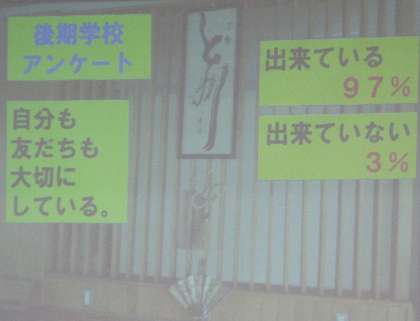 後期学校
アンケート
自分も
友だちも
大切に
している。
出来ている
97%
出来ていない
3%